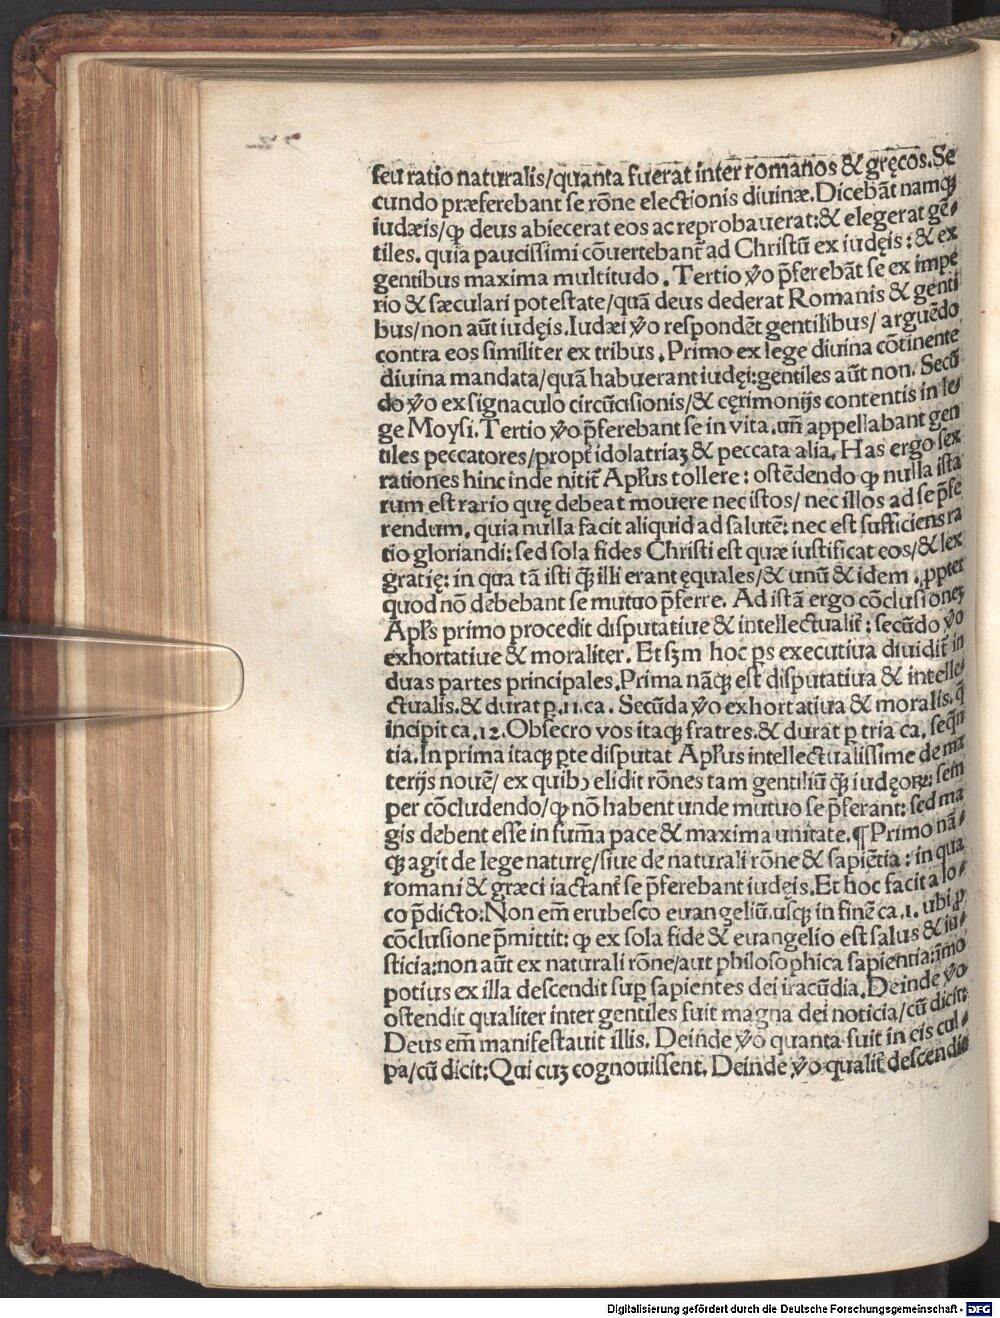 seu ratio naturalis/quãnta fuerat inter romanos & gręcos.Se
cundo præferebant se rõne electionis diuinæ.Dicebãt namqȝ
iudæis/ꝙ deus abiecerat eos ac reprobauerat:& elegerat gẽ-
tiles. quia paucissimi cõuertebant̃ ad Christũ ex iudęis: & ex
gentibus maxima multitudo. Tertio ṽo p̃ferebãt se ex impe
rio & sæculari potestate/quã deus dederat Romanis & genti
bus/non aũt iudęis.Iudæi ṽo respondẽt gentilibus/ arguẽdo
contra eos similiter ex tribus. Primo ex lege diuina cõtinente
diuina mandata/quã habuerant iudęi:gentiles aũt non. Secũ
do ṽo ex signaculo circũcisionis/& cęrimonijs contentis in le-
ge Moysi. Tertio ṽo p̃ferebant se in vita.uñ appellabant gen
tiles peccatores/propt̃ idolatriaȝ & peccata alia. Has ergo sex
rationes hinc inde nitit̃ Apl̃us tollere: ostẽdendo ꝙ nulla ista
rum est rario quę debeat mouere nec istos/ nec illos ad se p̃fe
rendum. quia nulla facit aliquid ad salutẽ: nec est sufficiens ra
tio gloriandi: sed sola fides Christi est quæ iustificat eos/& lex
gratię: in qua tã isti q̃ȝ illi erant ęquales/& unũ & idem . ꝓpter
quod nõ debebant se mutuo p̃ferre. Ad istã ergo cõclusioneȝ
Apl̃s primo procedit disputatiue & intellectualit̃: secũdo ṽo
exhortatiue & moraliter. Et sȝm hoc ꝑs executiua diuidit̃ in
duas partes principales.Prima nãqȝ est disputatiua & intelle-
ctualis.& durat ꝑ.11.ca. Secũda ṽo exhortatiua & moralis. q̃
incipit ca.12.Obsecro vos itaqȝ fratres.& durat ꝑ tria ca. seq̃n
tia.In prima itaqȝ ꝑte disputat Apl̃us intellectualissime de ma
terijs nouẽ/ ex quibꝰ elidit rõnes tam gentiliũ q̃ȝ iudęoꝝ: sem
per cõcludendo/ꝙ nõ habent unde mutuo se p̃ferant: sed ma
gis debent esse in sum̃a pace & maxima unitate.¶Primo nã-
qȝ agit de lege naturę/siue de naturali rõne & sapiẽtia: in qua
romani & græci iactant̃ se p̃ferebant iudęis.Et hoc facit a lo-
co p̃dicto:Non em̃ erubesco euangeliũ.usqȝ in finẽ ca.1. ubi ꝓ
cõclusione p̃mittit: ꝙ ex sola fide & euangelio est salus & iu-
sticia:non aũt ex naturali rõne/aut philosophica sapientia:im̃o
potius ex illa descendit sup̃ sapientes dei iracũdia.Deinde ṽo
ostendit qualiter inter gentiles fuit magna dei noticia/cũ dicit:
Deus em̃ manifestauit illis. Deinde ṽo quanta fuit in eis cul-
pa/cũ dicit:Qui cuȝ cognouissent. Deinde ṽo qualit̃ descendit
Digitalisierung gefördert durch die Deutsche Forschungsgemeinschaft - DFG